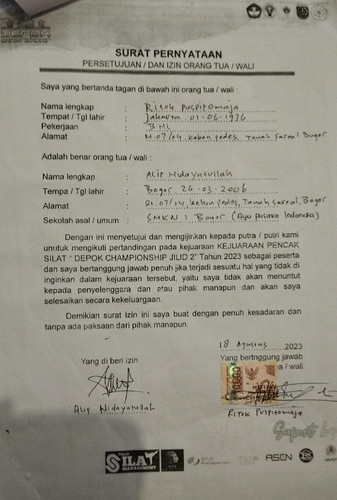 SURAT PERNYATAAN
PERSETUJUAN / DAN IZIN ORANG TUA / WALI
Saya yang bertanda tagan di bawah ini orang tua / wali :
Nama lengkap : Ritok Puspitomaja
Tempat / Tgl lahir : Jakarta, 01-06-1976
Pekerjaan : BMI
Alamat : Jl. 07/04 kebon pedes, Tanah Sareal Bogor
Adalah benar orang tua / wali :
Nama lengkap : Alip Hidayatullah
Tempa / Tgl lahir : Bogor, 26-03-2006
Alamat : Rt. 07/04 kebon pedes, Tanah sareal, Bogor
Sekolah asal / umum : SMKN 1 Bogor (Ayu Pusaka Indonesia)
Dengan ini menyetujui dan mengijirkan kepada putra / putri kami
untuk mengikuti pertandingan pada kejuaraan KEJUARAAN PENCAK
SILAT " DEPOK CHAMPIONSHIP JILID 2" Tahun 2023 sebagai peserta
dan saya bertanggung jawab penuh jika terjadi sesuatu hal yang tidak di
inginkan dalam kejuaraan tersebut, yaitu saya tidak akan menuntut
kepada penyelenggara dan atau pihak manapun dan akan saya
selesaikan secara kekeluargaan.
Demikian surat izin ini saya buat dengan penuh kesadaran dan
tanpa ada paksaan dari pihak manapun.
18 Agustus 2023
Yang di beri izin
Yang bertnggung jawab
/ wali
Alip Hidayatullah
Ritok Puspitomaja
Suport by
SILAT
MANAGEMENT